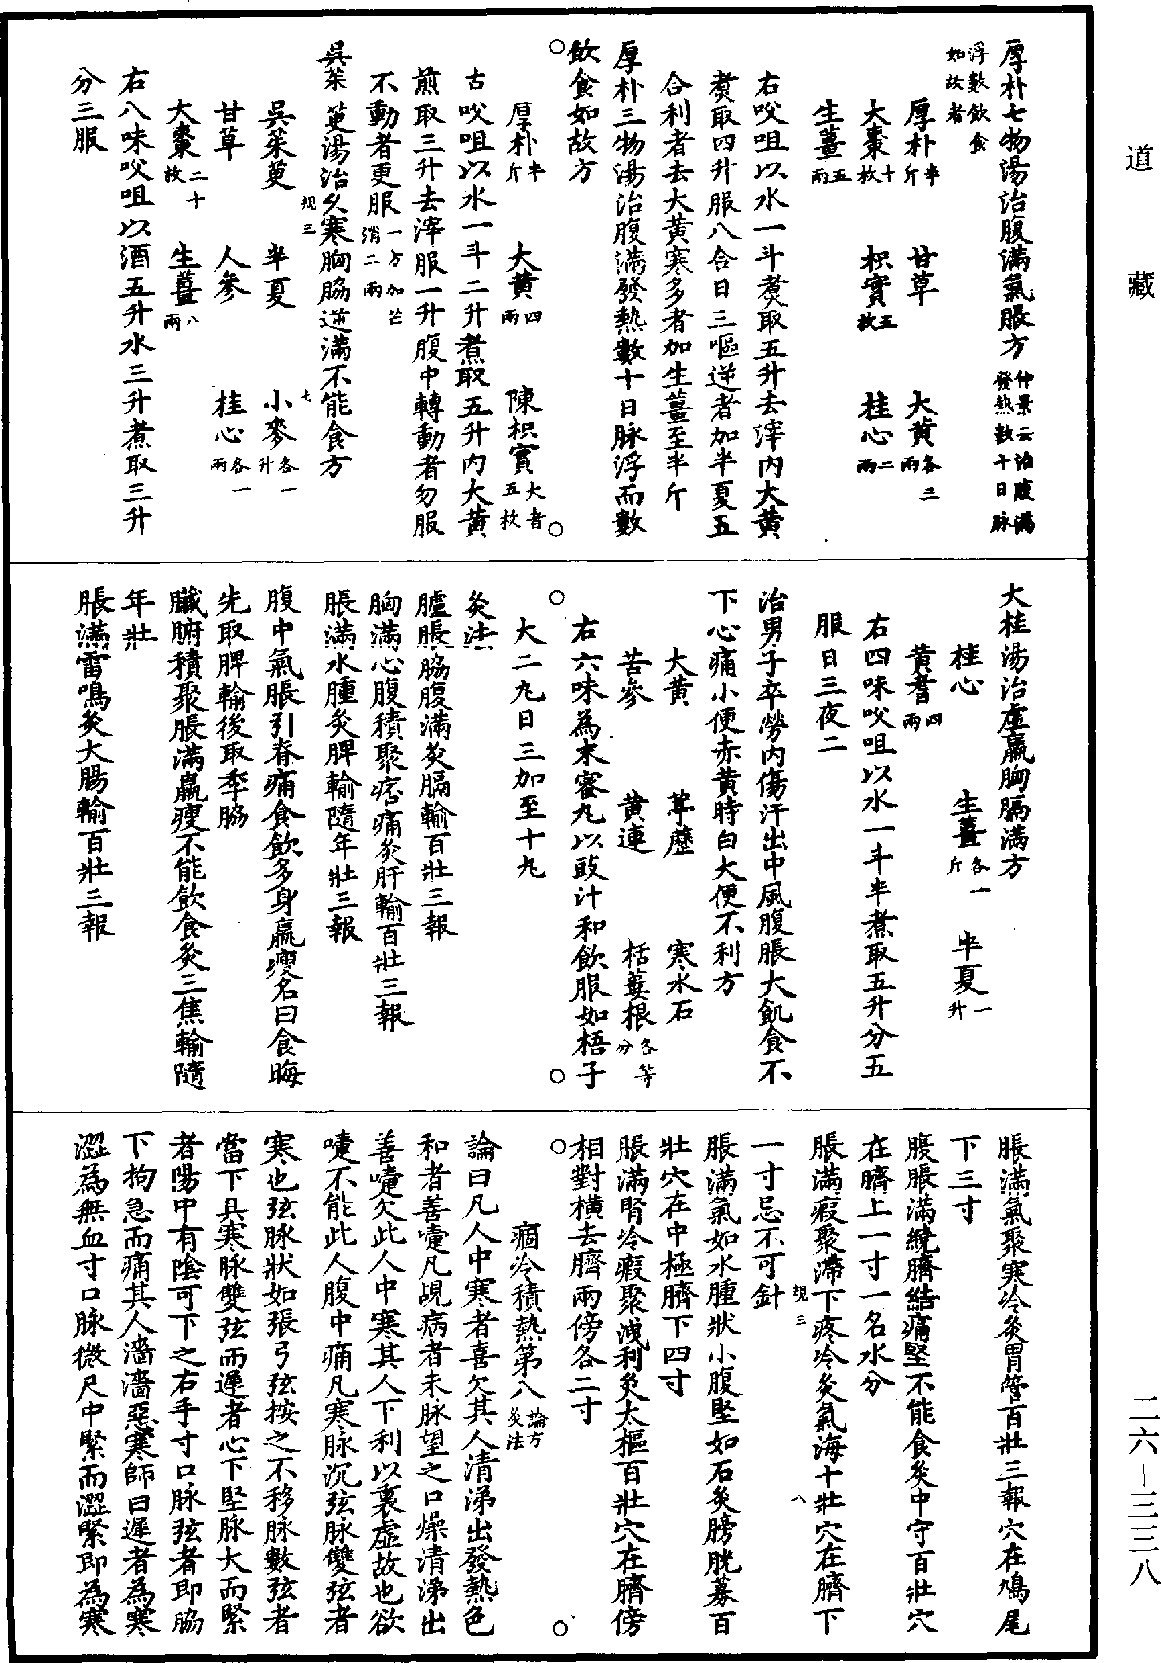 道藏
厚朴七物湯治腹滿氣脹方仲景云治腹滿發熱數十日脉
浮數飲食如故者
厚朴半斤 甘草 大黃各三兩
大棗十枚 枳實五枚 桂心二兩
生薑五兩
右㕮咀以水一斗煑取五升去滓內大黃
煑取四升服八合日三嘔逆者加半夏五
合利者去大黃寒多者加生薑至半斤
厚朴三物湯治腹滿發熱數十日脉浮而數
飲食如故方
厚朴半斤 大黃四兩 陳枳實大者五枚
古㕮咀以水一斗二升煮取五升內大黃
煎取三升去滓服一升腹中轉動者勿服
不動者更服一方加芒消二兩
吳茱萸湯治久寒胸脇逆滿不能食方
規三 七
吳茱萸 半夏 小麥各一升
甘草 人參 桂心各一兩
大棗二十枚 生薑八兩
右八味㕮咀以酒五升水三升煮取三升
分三服
大桂湯治虛羸胸膈滿方
桂心 生薑各一斤 半夏一升
黃耆四兩
右四味㕮咀以水一斗半煮取五升分五
服日三夜二
治男子卒勞內傷汗出中風腹脹大飢食不
下心痛小便赤黃時白大便不利方
大黃 葶藶 寒水石
苦參 黃連 栝蔞根各等分
右六味為末蜜丸以豉汁和飲服如梧子
大二丸日三加至十丸
灸法
臚脹脇腹滿灸膈輸百壯三報
胸滿心腹積聚痞痛灸肝輸百壯三報
脹滿水腫灸脾輸隨年壯三報
腹中氣脹引脊痛食飲多身羸瘦名曰食晦
先取脾輸後取季脇
臟腑積聚脹滿羸瘦不能飲食灸三焦輸隨
年壯
脹滿雷鳴灸大腸輸百壯三報
脹滿氣聚寒冷灸胃管百壯三報穴在鳩尾
下三寸
腹脹滿繞臍結痛堅不能食灸中守百壯穴
在臍上一寸一名水分
脹滿瘕聚滯下疼冷灸氣海十壯穴在臍下
規三 八
一寸忌不可針
脹滿氣如水腫狀小腹堅如石灸膀胱募百
壯穴在中極臍下四寸
脹滿腎冷瘕聚洩利灸太樞百壯穴在臍傍
相對橫去臍兩傍各二寸
痼冷積熱第八論方灸法
論曰凡人中寒者喜欠其人清涕出發熱色
和者善嚏凡覘病者未脉望之口燥清涕出
善嚏欠此人中寒其人下利以裏虛故也欲
嚏不能此人腹中痛凡寒脉沉弦脉雙弦者
寒也弦脉狀如張弓弦按之不移脉數弦者
當下其寒脉雙弦而遲者心下堅脉大而緊
者陽中有陰可下之右手寸口脉弦者即脇
下拘急而痛其人濇濇惡寒師曰遲者為寒
澀為無血寸口脉微尺中緊而澀緊即為寒
二六—三三八